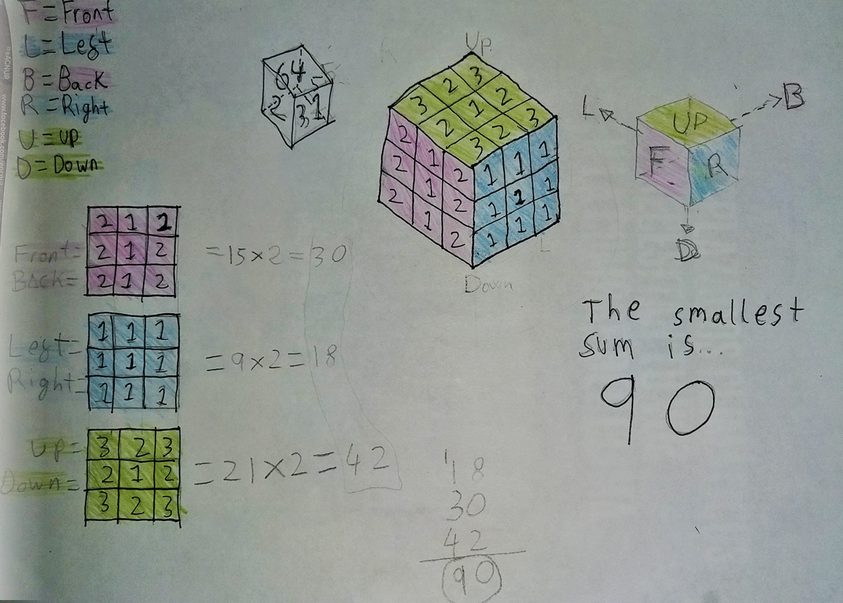 F = Front
L = Left
B = Back
R = Right
U = UP
D = Down
6 4 5
2 3 1
UP
3 2 3
2 1 2
3 2 3
2 1 2
2 1 2
2 1 2
1 1 1
1 1 1
1 1 1
L
Down
L
B
UP
F
R
D
Front =
Back =
2 1 2
2 1 2
2 1 2
= 15 × 2 = 30
Left =
Right =
1 1 1
1 1 1
1 1 1
= 9 × 2 = 18
Up =
Down =
3 2 3
2 1 2
3 2 3
= 21 × 2 = 42
1
18
30
42
90
The smallest
sum is...
90